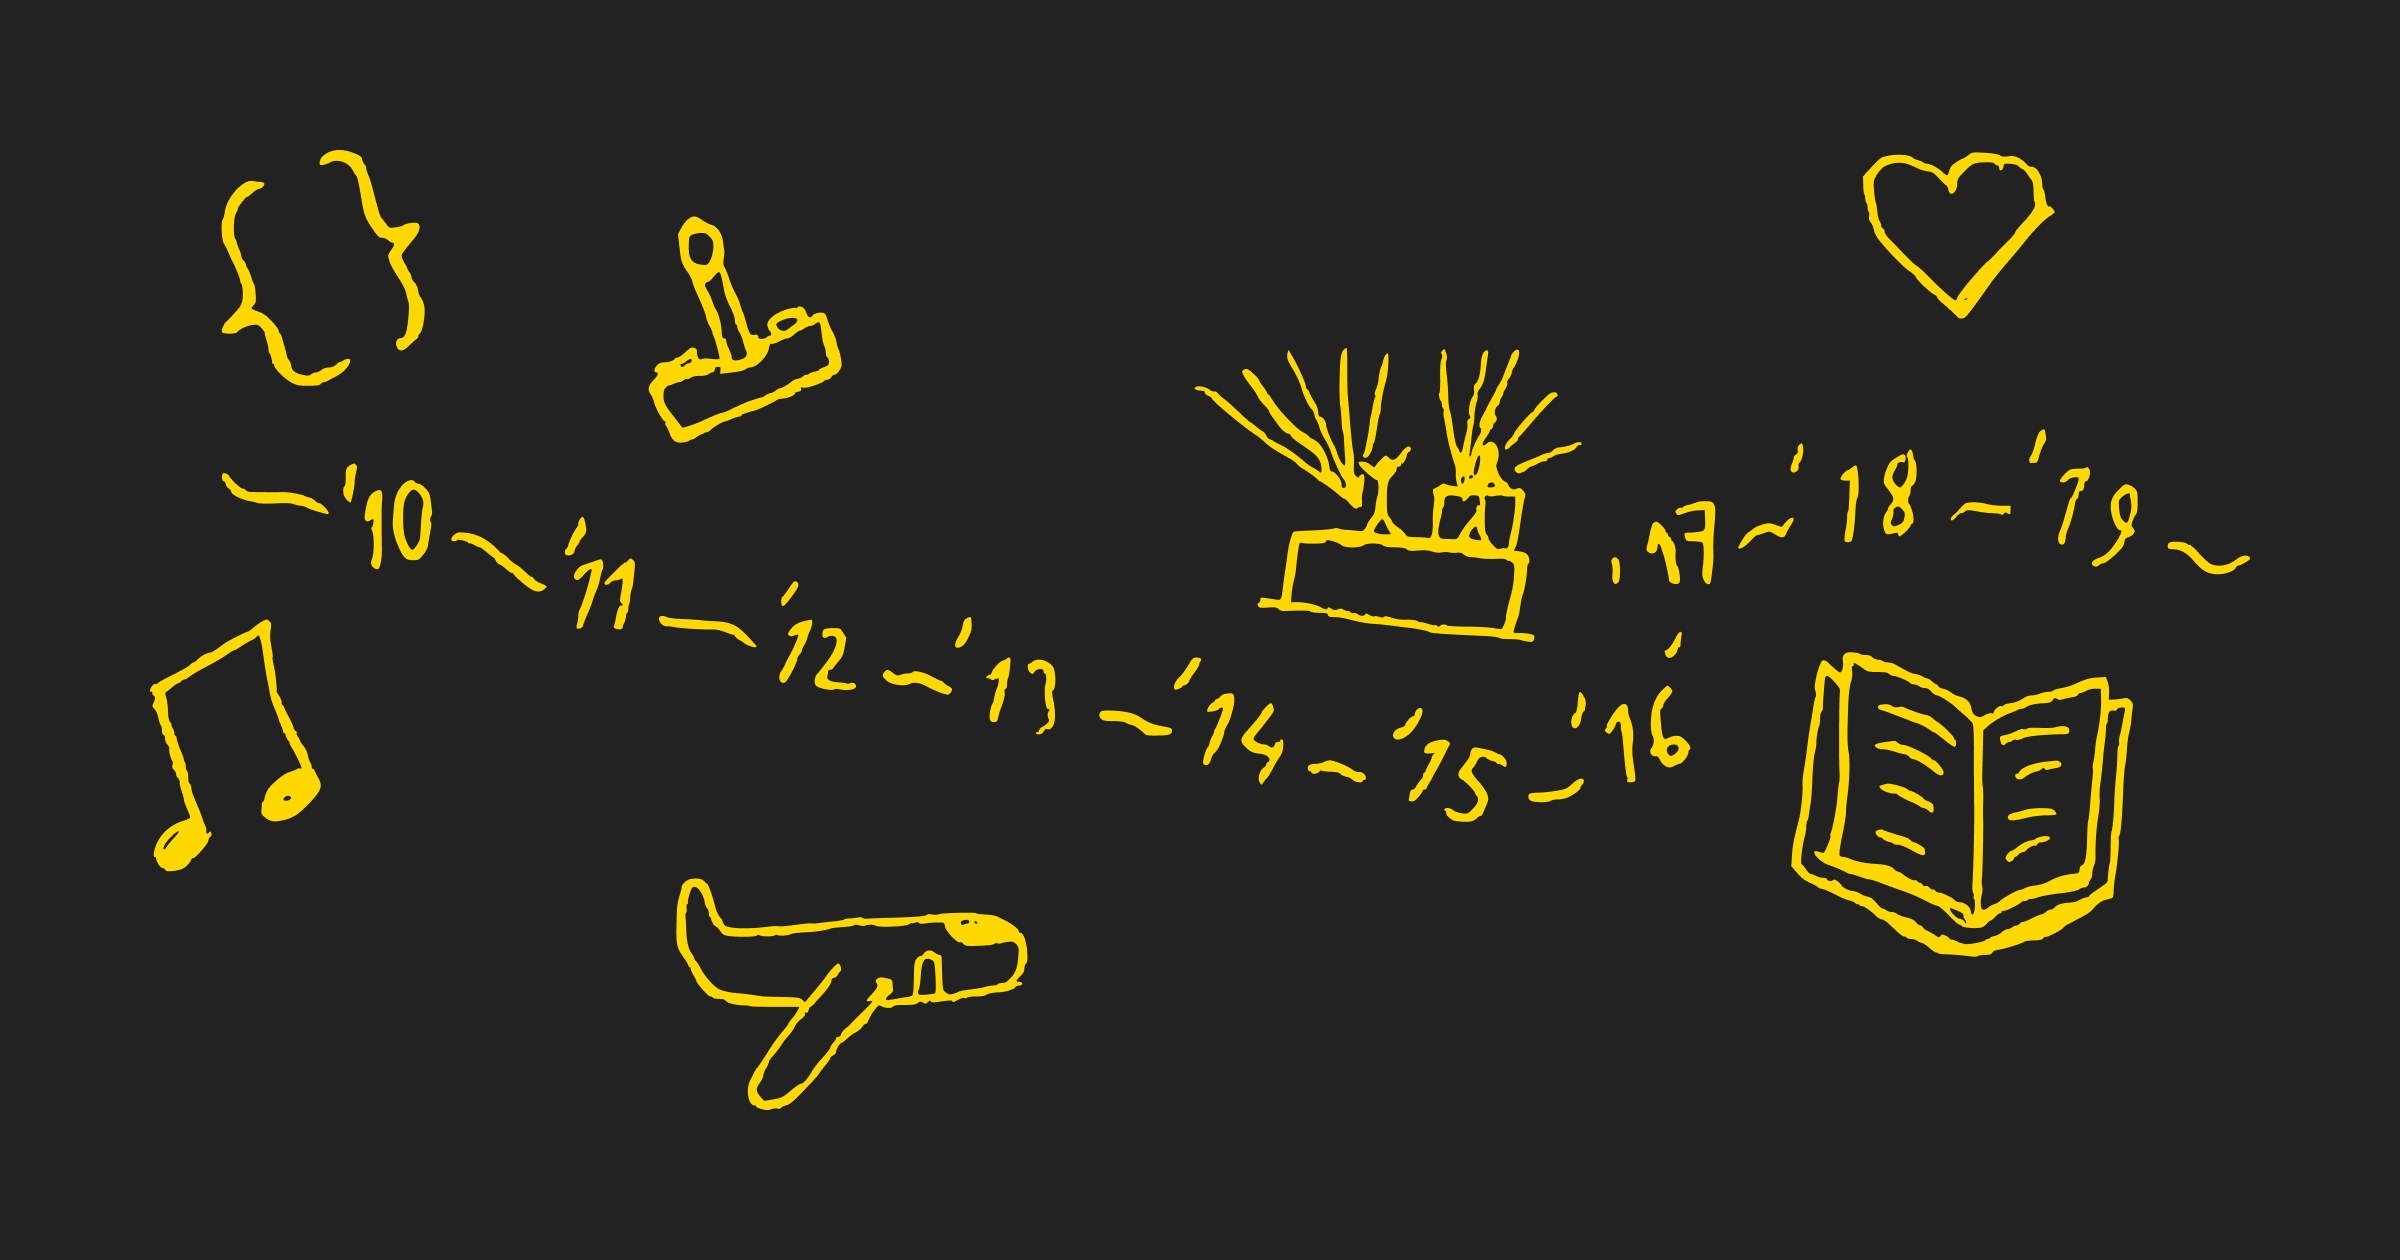 { }
'10 '11 '12 '13 '14 '15 '16 '17 '18 '19